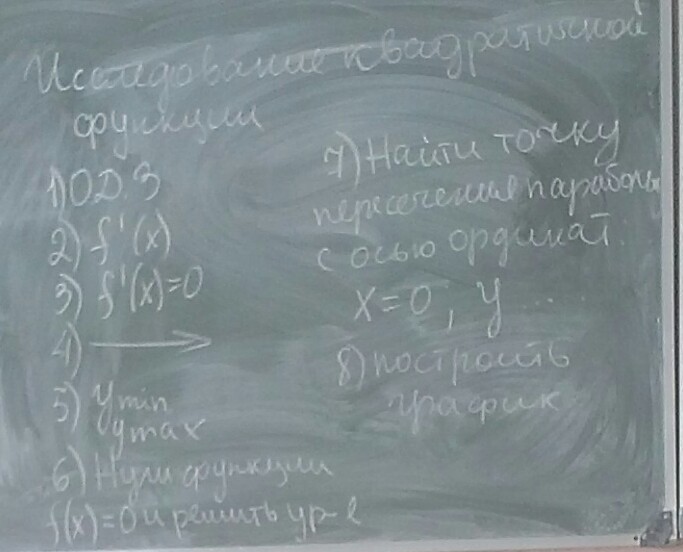 Исследование квадратичной
функции
1) О.Д.З
2) f'(x)
3) f'(x)=0
4) →
5) y min
y max
6) Нули функции
f(x)=0 и решить ур-е
7) Найти точку
пересечения параболы
с осью ординат.
x=0, y ...
8) построить
график